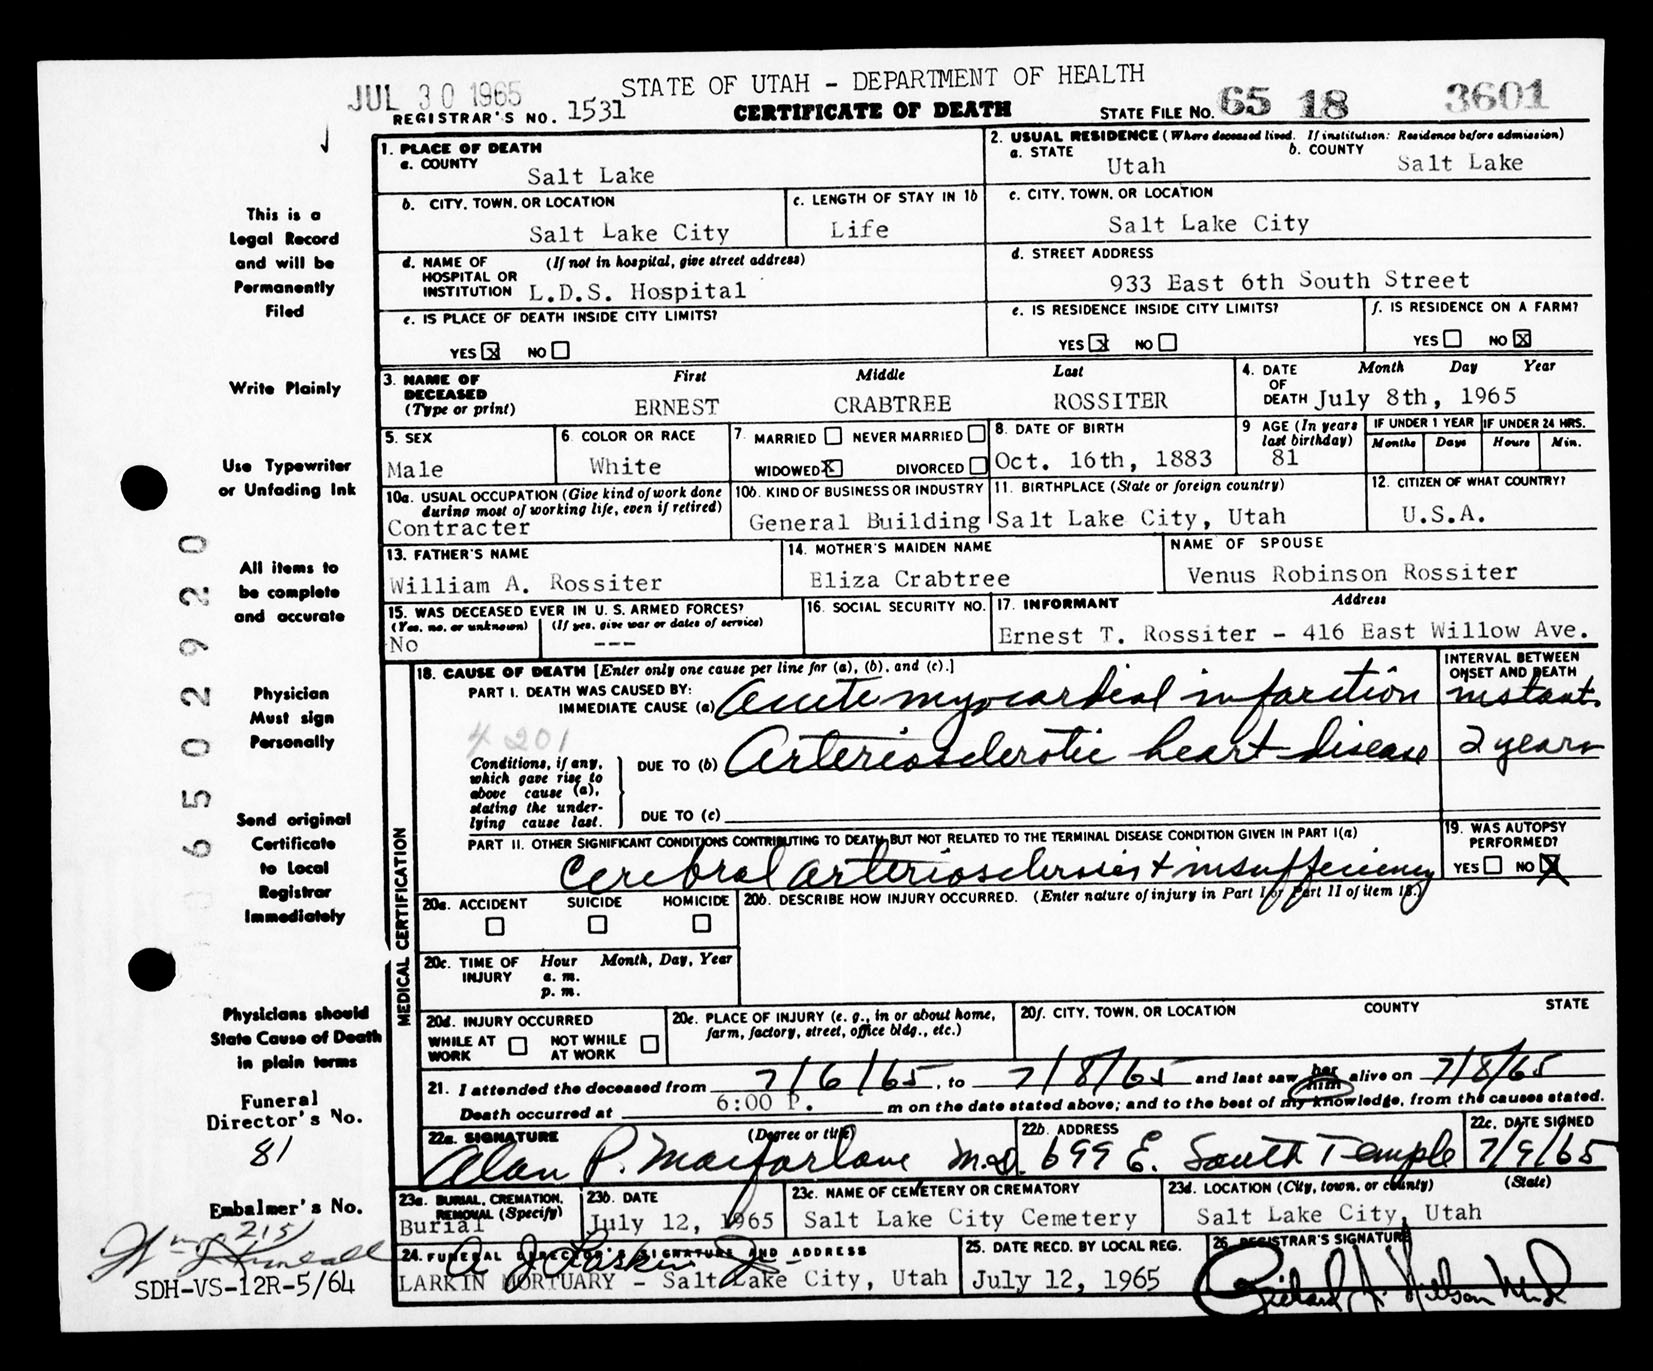 JUL 30 1965
STATE OF UTAH - DEPARTMENT OF HEALTH
REGISTRAR'S NO. 1531
CERTIFICATE OF DEATH
STATE FILE NO. 65 18 3601
1. PLACE OF DEATH
a. COUNTY
Salt Lake
2. USUAL RESIDENCE (Where deceased lived. If institution: Residence before admission)
a. STATE
Utah
b. COUNTY
Salt Lake
b. CITY, TOWN, OR LOCATION
Salt Lake City
c. LENGTH OF STAY IN 1b
Life
c. CITY, TOWN, OR LOCATION
Salt Lake City
d. NAME OF HOSPITAL OR INSTITUTION (If not in hospital, give street address)
L.D.S. Hospital
d. STREET ADDRESS
933 East 6th South Street
e. IS PLACE OF DEATH INSIDE CITY LIMITS?
YES X NO
e. IS RESIDENCE INSIDE CITY LIMITS?
YES X NO
f. IS RESIDENCE ON A FARM?
YES NO X
3. NAME OF DECEASED (Type or print)
First Middle Last
ERNEST CRABTREE ROSSITER
4. DATE OF DEATH
Month Day Year
July 8th, 1965
5. SEX
Male
6. COLOR OR RACE
White
7. MARRIED NEVER MARRIED
WIDOWED X DIVORCED
8. DATE OF BIRTH
Oct. 16th, 1883
9 AGE (In years last birthday)
81
IF UNDER 1 YEAR
Months Days
IF UNDER 24 HRS.
Hours Min.
10a. USUAL OCCUPATION (Give kind of work done during most of working life, even if retired)
Contracter
10b. KIND OF BUSINESS OR INDUSTRY
General Building
11. BIRTHPLACE (State or foreign country)
Salt Lake City, Utah
12. CITIZEN OF WHAT COUNTRY?
U.S.A.
13. FATHER'S NAME
William A. Rossiter
14. MOTHER'S MAIDEN NAME
Eliza Crabtree
NAME OF SPOUSE
Venus Robinson Rossiter
15. WAS DECEASED EVER IN U. S. ARMED FORCES?
(Yes, no, or unknown) (If yes, give war or dates of service)
No ---
16. SOCIAL SECURITY NO.
17. INFORMANT Address
Ernest T. Rossiter - 416 East Willow Ave.
18. CAUSE OF DEATH [Enter only one cause per line for (a), (b), and (c).]
PART I. DEATH WAS CAUSED BY:
IMMEDIATE CAUSE (a) Acute myocardial infarction
INTERVAL BETWEEN ONSET AND DEATH
instant.
4 201
Conditions, if any, which gave rise to above cause (a), stating the underlying cause last.
DUE TO (b) Arteriosclerotic heart disease 2 years
DUE TO (c)
PART II. OTHER SIGNIFICANT CONDITIONS CONTRIBUTING TO DEATH BUT NOT RELATED TO THE TERMINAL DISEASE CONDITION GIVEN IN PART I(a)
Cerebral arteriosclerosis + insufficiency
19. WAS AUTOPSY PERFORMED?
YES NO X
MEDICAL CERTIFICATION
20a. ACCIDENT SUICIDE HOMICIDE
20b. DESCRIBE HOW INJURY OCCURRED. (Enter nature of injury in Part I or Part II of item 18.)
20c. TIME OF INJURY Hour Month, Day, Year
a. m.
p. m.
20d. INJURY OCCURRED
WHILE AT WORK NOT WHILE AT WORK
20e. PLACE OF INJURY (e. g., in or about home, farm, factory, street, office bldg., etc.)
20f. CITY, TOWN, OR LOCATION COUNTY STATE
21. I attended the deceased from 7/6/65, to 7/8/65 and last saw her him alive on 7/8/65
Death occurred at 6:00 P. m on the date stated above; and to the best of my knowledge, from the causes stated.
22a. SIGNATURE (Degree or title)
Alan P. Macfarlane M.D.
22b. ADDRESS
699 E. South Temple
22c. DATE SIGNED
7/9/65
23a. BURIAL, CREMATION, REMOVAL (Specify)
Burial
23b. DATE
July 12, 1965
23c. NAME OF CEMETERY OR CREMATORY
Salt Lake City Cemetery
23d. LOCATION (City, town, or county) (State)
Salt Lake City, Utah
24. FUNERAL DIRECTOR'S SIGNATURE AND ADDRESS
A J Larkin Jr
LARKIN MORTUARY - Salt Lake City, Utah
25. DATE RECD. BY LOCAL REG.
July 12, 1965
26. REGISTRAR'S SIGNATURE
This is a
Legal Record
and will be
Permanently
Filed
Write Plainly
Use Typewriter
or Unfading Ink
All items to
be complete
and accurate
Physician
Must sign
Personally
Send original
Certificate
to Local
Registrar
Immediately
Physicians should
State Cause of Death
in plain terms
Funeral
Director's No.
81
Embalmer's No.
215
SDH-VS-12R-5/64
6502920